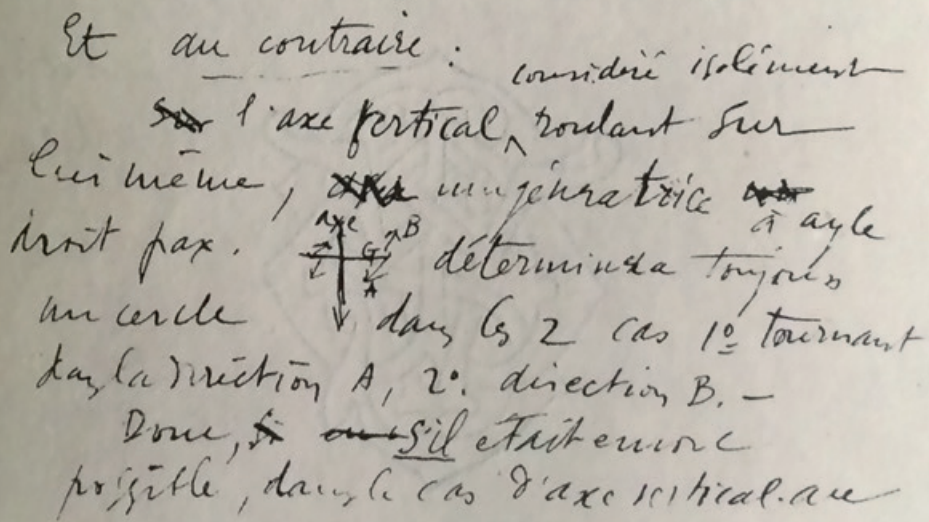 Et au contraire :
considéré isolément
l'axe vertical, roulant sur
lui même, une génératrice
à angle
droit par. axe G B A déterminera toujours
un cercle dans les 2 cas 1º tournant
dans la direction A, 2º. direction B. –
Donc, s'il était encore
possible, dans le cas d'axe vertical